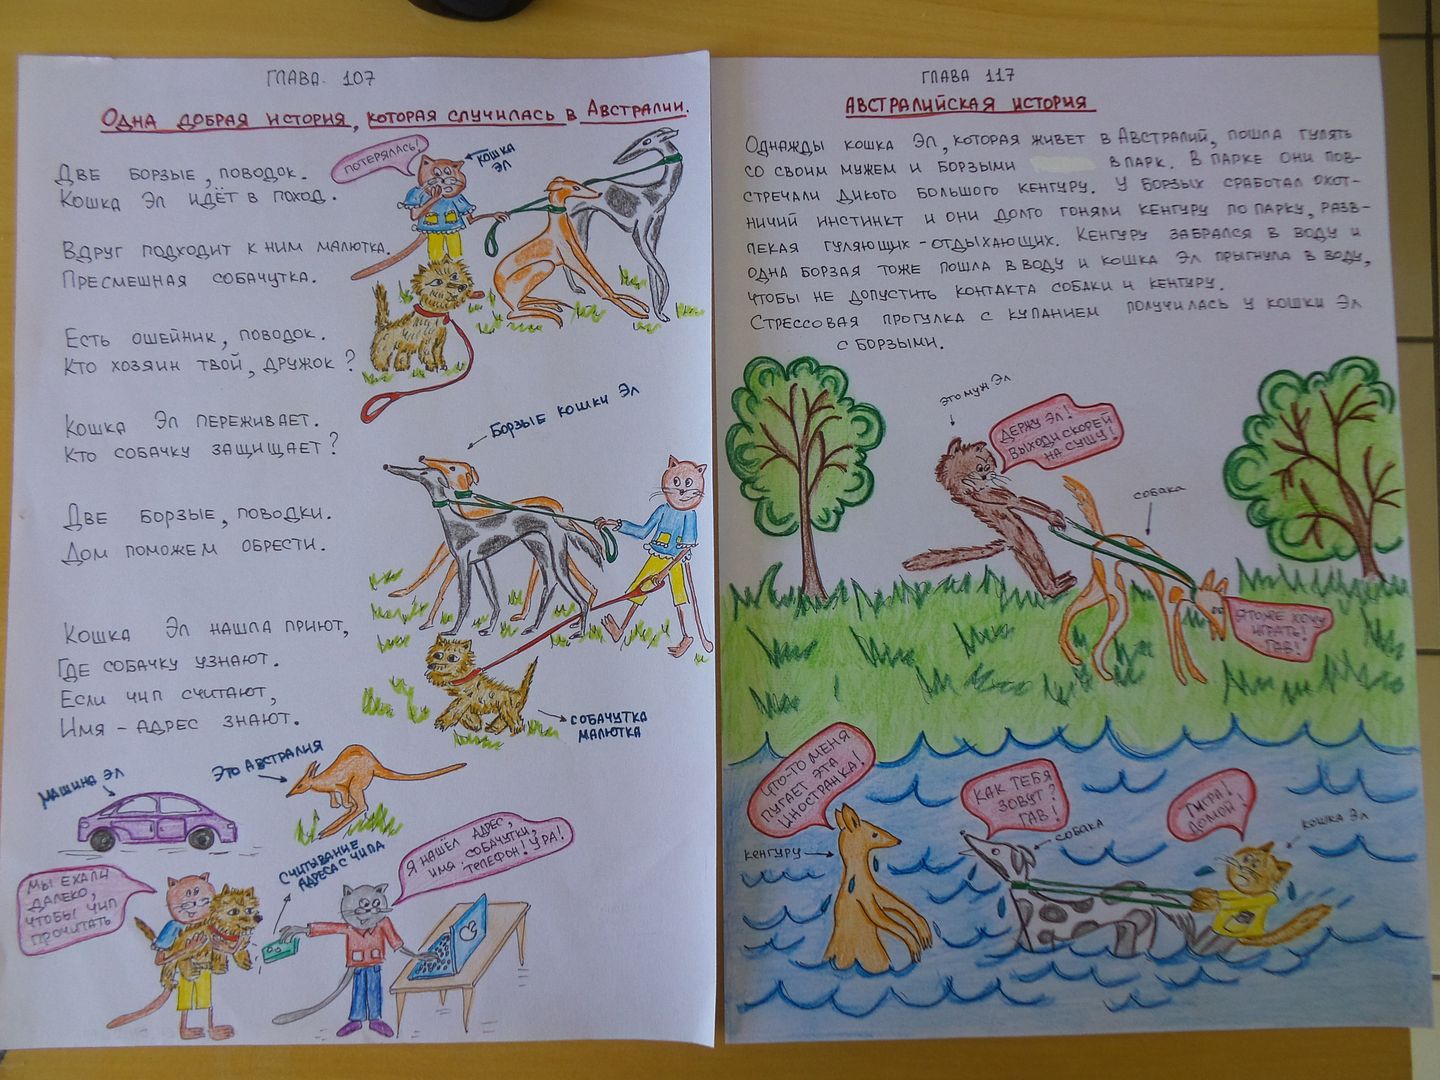 ГЛАВА 107
ОДНА ДОБРАЯ ИСТОРИЯ, КОТОРАЯ СЛУЧИЛАСЬ В АВСТРАЛИИ.
ПОТЕРЯЛАСЬ!
КОШКА
ЭЛ
ДВЕ БОРЗЫЕ, ПОВОДОК.
КОШКА ЭЛ ИДЁТ В ПОХОД.
ВДРУГ ПОДХОДИТ К НИМ МАЛЮТКА.
ПРЕСМЕШНАЯ СОБАЧУТКА.
ЕСТЬ ОШЕЙНИК, ПОВОДОК.
КТО ХОЗЯИН ТВОЙ, ДРУЖОК?
КОШКА ЭЛ ПЕРЕЖИВАЕТ.
КТО СОБАЧКУ ЗАЩИЩАЕТ?
БОРЗЫЕ КОШКИ ЭЛ
ДВЕ БОРЗЫЕ, ПОВОДКИ.
ДОМ ПОМОЖЕМ ОБРЕСТИ.
КОШКА ЭЛ НАШЛА ПРИЮТ,
ГДЕ СОБАЧКУ УЗНАЮТ.
ЕСЛИ ЧИП СЧИТАЮТ,
ИМЯ - АДРЕС ЗНАЮТ.
СОБАЧУТКА
МАЛЮТКА
МАШИНА ЭЛ
ЭТО АВСТРАЛИЯ
МЫ ЕХАЛИ
ДАЛЕКО,
ЧТОБЫ ЧИП
ПРОЧИТАТЬ
СЧИТЫВАНИЕ
АДРЕСА С ЧИПА
Я НАШЁЛ АДРЕС,
ИМЯ СОБАЧУТКИ,
ТЕЛЕФОН! УРА!
ГЛАВА 117
АВСТРАЛИЙСКАЯ ИСТОРИЯ
ОДНАЖДЫ КОШКА ЭЛ, КОТОРАЯ ЖИВЕТ В АВСТРАЛИЙ, ПОШЛА ГУЛЯТЬ
СО СВОИМ МУЖЕМ И БОРЗЫМИ В ПАРК. В ПАРКЕ ОНИ ПОВ-
СТРЕЧАЛИ ДИКОГО БОЛЬШОГО КЕНГУРУ. У БОРЗЫХ СРАБОТАЛ ОХОТ-
НИЧИЙ ИНСТИНКТ И ОНИ ДОЛГО ГОНЯЛИ КЕНГУРУ ПО ПАРКУ, РАЗВ-
ЛЕКАЯ ГУЛЯЮЩИХ-ОТДЫХАЮЩИХ. КЕНГУРУ ЗАБРАЛСЯ В ВОДУ И
ОДНА БОРЗАЯ ТОЖЕ ПОШЛА В ВОДУ И КОШКА ЭЛ ПРЫГНУЛА В ВОДУ,
ЧТОБЫ НЕ ДОПУСТИТЬ КОНТАКТА СОБАКИ И КЕНГУРУ.
СТРЕССОВАЯ ПРОГУЛКА С КУПАНИЕМ ПОЛУЧИЛАСЬ У КОШКИ ЭЛ
С БОРЗЫМИ.
ЭТО МУЖ ЭЛ
ДЕРЖУ ЭЛ!
ВЫХОДИ СКОРЕЙ
НА СУШУ!
СОБАКА
Я ТОЖЕ ХОЧУ
ИГРАТЬ!
ГАВ!
ЧТО-ТО МЕНЯ
ПУГАЕТ ЭТА
ИНОСТРАНКА!
КЕНГУРУ
КАК ТЕБЯ
ЗОВУТ?
ГАВ!
СОБАКА
ТИГРА!
ДОМОЙ!
КОШКА ЭЛ